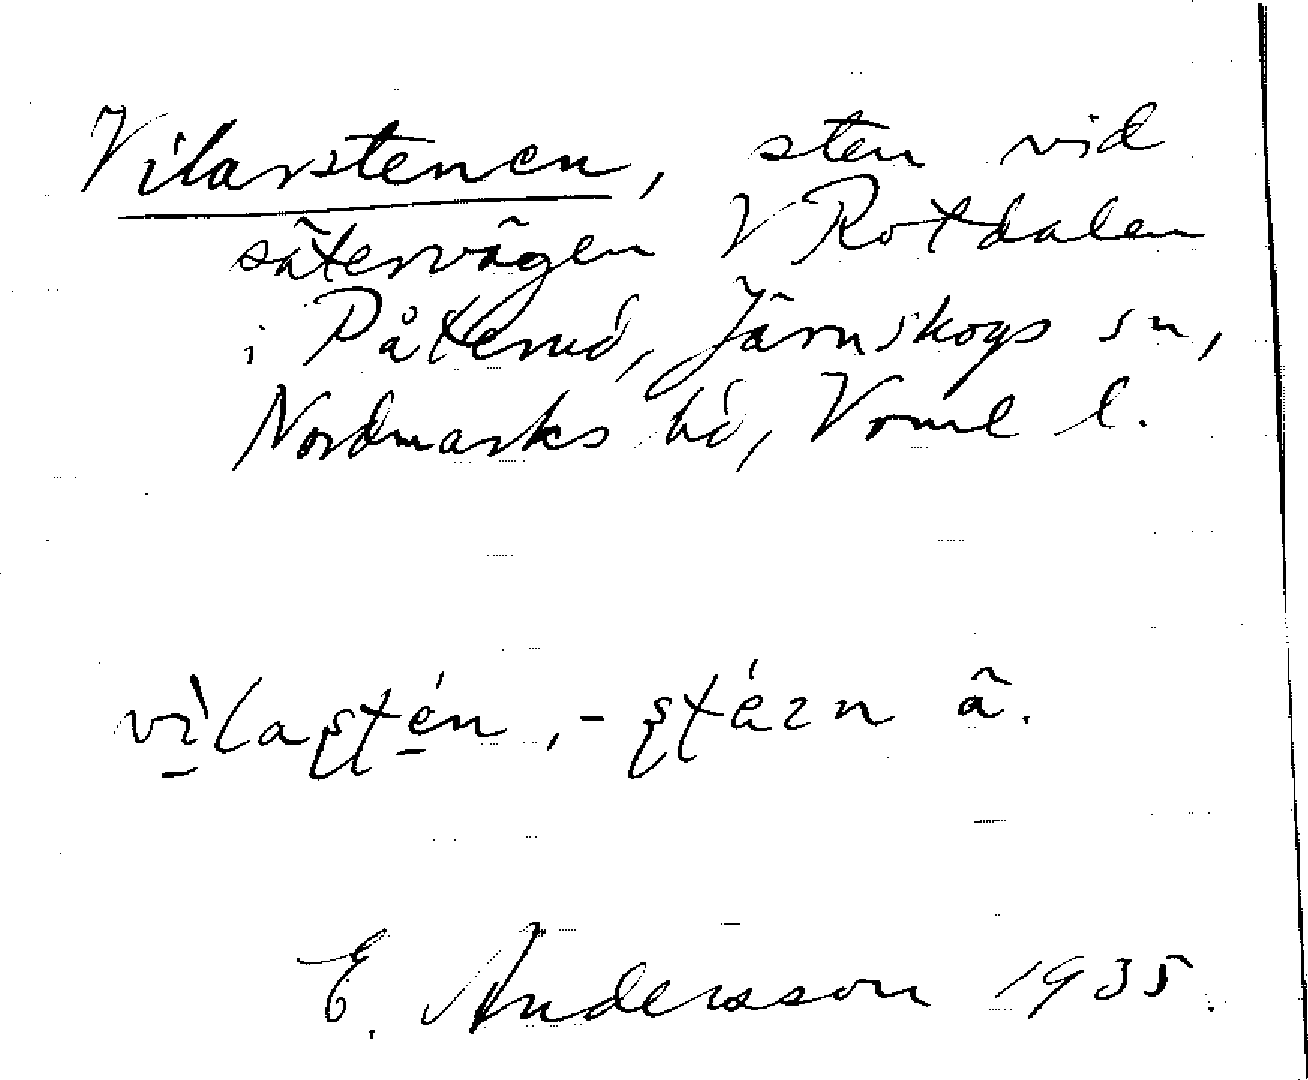 Vilarstenen, sten vid
sätervägen V Rotdalen
i Påterud, Järnskogs sn,
Nordmarks hd, Värml l.
E. Andersson 1935.